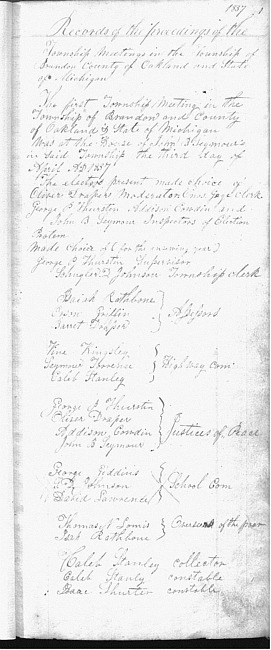 1837 1
Records of the proceedings of the
Township Meetings in the Township of
Brandon County of Oakland and State
of Michigan
The first Township Meeting in the
Township of Brandon and County
of Oakland & State of Michigan
Was at the House of John B Seymour's
in said Township the third day of
April AD 1837
The electors present made choice of
Oliver Draper Moderator clerk
George P Thurston Addison Cowdin and
John B Seymour Inspectors of Election
Protem
Made choice of (for the ensuing year)
George P Thurston Supervisor
Johnson Township clerk
Isaiah Rathbone
Griffin } Assesors
Garret Draper
Kingsley
Seymour } Highway Com
Caleb Stanley
George P Thurston
Oliver Draper
Addison Cowdin } Justices of Peace
John B Seymour
George Giddins
Johnson } School Com
David Lawrence
Thomas N Lomis } Overseers of the poor
Rathbone
Caleb Stanley collector
Caleb Stanly constable
Isaac Shurter constable